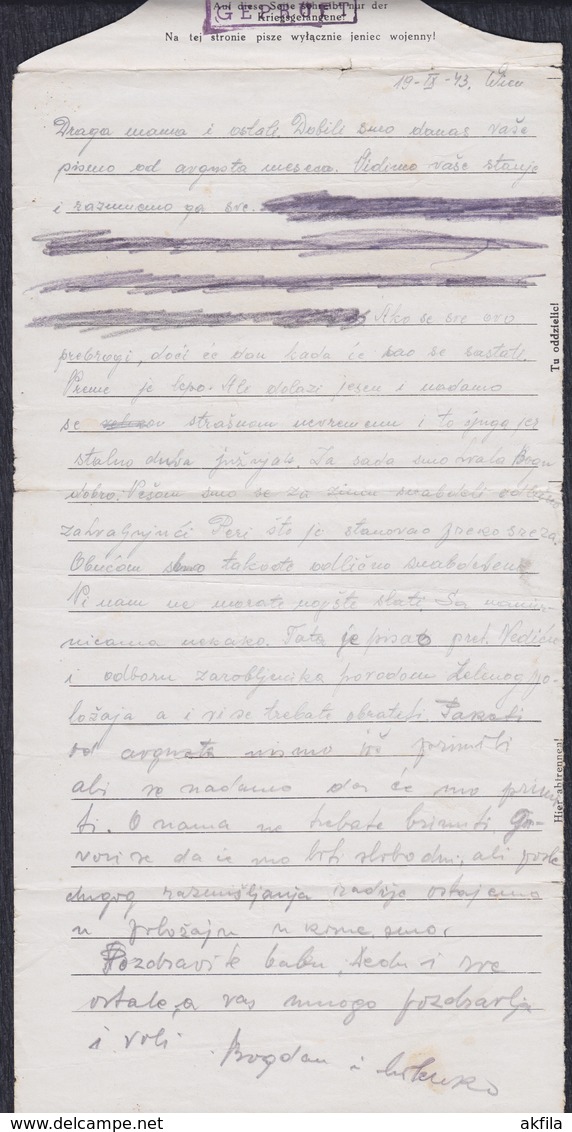 Auf diese Seite schreibt nur der
Kriegsgefangene!
GEPRÜFT
Na tej stronie pisze wyłącznie jeniec wojenny!
19-IX-43. Wien
Draga mama i ostali. Dobili smo danas vaše
pismo od avgusta meseca. Vidimo vaše stanje
i razumemo ga sve.
Ako se sve ovo
prebrogi, doći će dan kada će se sastati.
Vreme je lepo. Ali dolazi jesen i nadamo
se strašnom nevremenu i to jer
stalno duva južnjak. Za sada smo hvala Bogu
dobro. Vešom smo se za zimu snabdeli odlično
zahvaljujući Peri što je stanovao preko sreza.
Obućom smo takođe odlično snabdeveni
Vi nam ne morate ništa slati. Sa
nicama nekako. Tata je pisao pret. Nediću
i odboru zarobljenika povodom po-
ložaja a i vi se trebate obratiti. Paketi
od avgusta nismo još primili
ali se nadamo da će mo primi
ti. O nama ne trebate brinuti. Go-
vori se da će mo biti slobodni, ali posle
dugog razmišljanja ostajemo
u položaju u kome smo.
Pozdravite babu, dedu i sve
ostale, a vas mnogo pozdravlja
i voli
Bogdan i
Tu oddzielić!
Hier abtrennen!
akfila